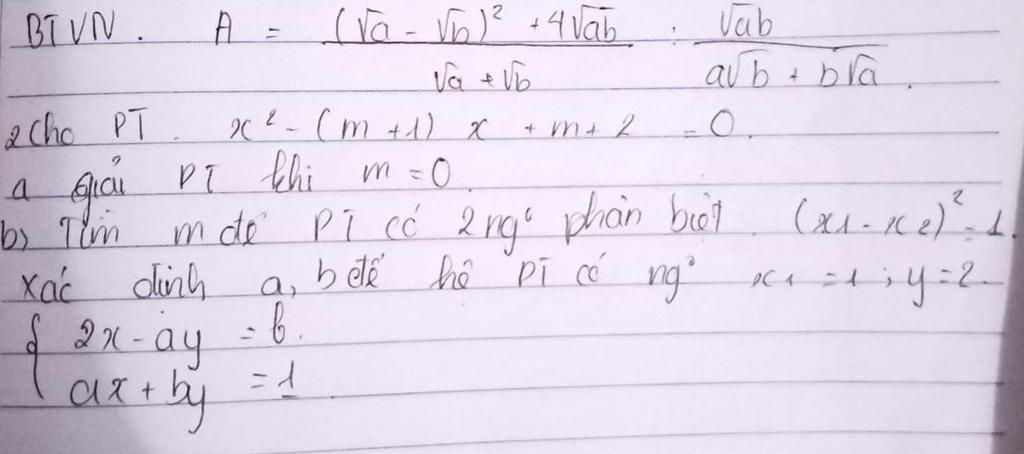 BTVN. A = (√a - √b)² + 4√ab / √a + √b : √ab / a√b + b√a.
2 Cho PT. x² - (m+1) x + m + 2 = 0.
a giải PT khi m = 0.
b) Tìm m để PT có 2 ng⁰ phân biệt. (x1 - x2)² = 1.
xác định a, b để hệ PT có ng⁰ x1 = 1 ; y = 2.
{ 2x - ay = b.
ax + by = 1